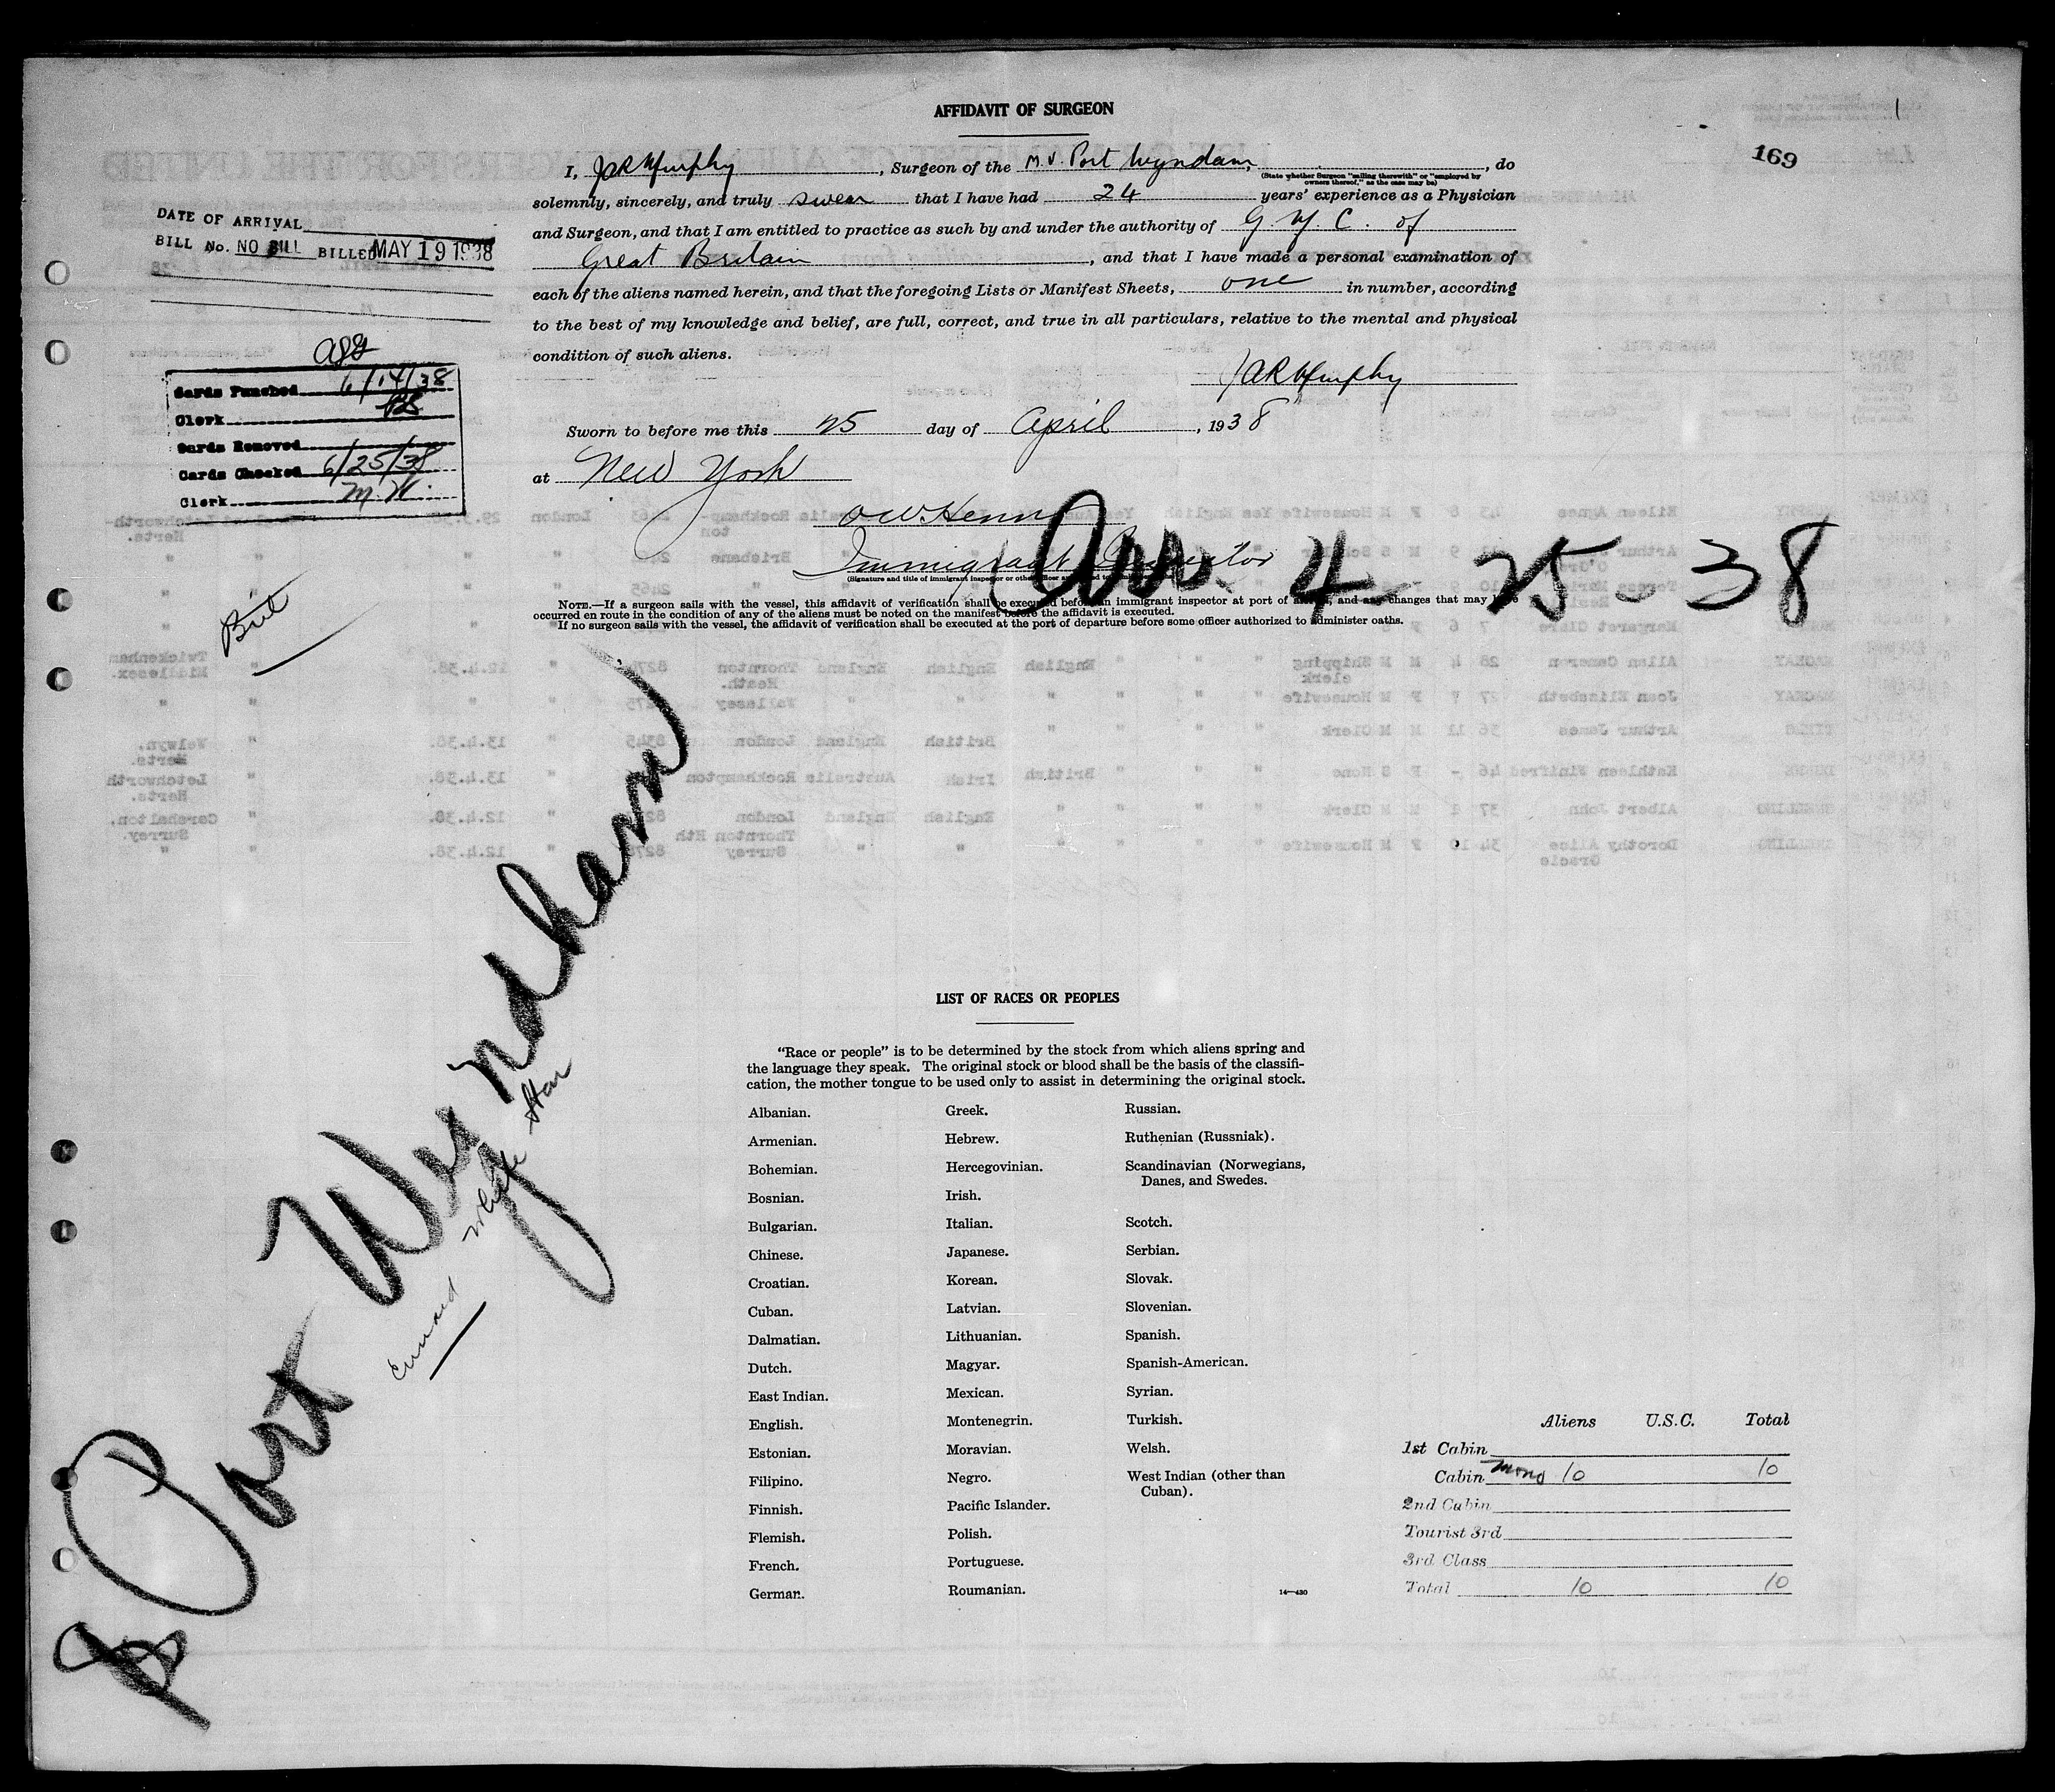 AFFIDAVIT OF SURGEON
169
I, JAR Murphy, Surgeon of the M.V. Port Wyndam, do
(State whether Surgeon "sailing therewith" or "employed by
owners thereof," as the case may be)
solemnly, sincerely, and truly swear that I have had 24 years' experience as a Physician
and Surgeon, and that I am entitled to practice as such by and under the authority of G. M. C. of
Great Britain, and that I have made a personal examination of
each of the aliens named herein, and that the foregoing Lists or Manifest Sheets, one in number, according
to the best of my knowledge and belief, are full, correct, and true in all particulars, relative to the mental and physical
condition of such aliens.
JAR Murphy
Sworn to before me this 25 day of April, 1938
at New York
Immigrant Inspector
(Signature and title of immigrant inspector or other officer
Arr. 4-25-38
NOTE.—If a surgeon sails with the vessel, this affidavit of verification shall be executed before an immigrant inspector at port of arrival, and any changes that may have
occurred en route in the condition of any of the aliens must be noted on the manifest before the affidavit is executed.
If no surgeon sails with the vessel, the affidavit of verification shall be executed at the port of departure before some officer authorized to administer oaths.
DATE OF ARRIVAL
BILL No. NO BILL BILLED MAY 19 1938
Cards Punched 6/14/38
Clerk
Cards Removed
Cards Checked 6/25/38
Clerk M.W.
Brit
Port Wyndham
Cunard White Star
LIST OF RACES OR PEOPLES
"Race or people" is to be determined by the stock from which aliens spring and
the language they speak. The original stock or blood shall be the basis of the classifi-
cation, the mother tongue to be used only to assist in determining the original stock.
Albanian.
Armenian.
Bohemian.
Bosnian.
Bulgarian.
Chinese.
Croatian.
Cuban.
Dalmatian.
Dutch.
East Indian.
English.
Estonian.
Filipino.
Finnish.
Flemish.
French.
German.
Greek.
Hebrew.
Hercegovinian.
Irish.
Italian.
Japanese.
Korean.
Latvian.
Lithuanian.
Magyar.
Mexican.
Montenegrin.
Moravian.
Negro.
Pacific Islander.
Polish.
Portuguese.
Roumanian.
Russian.
Ruthenian (Russniak).
Scandinavian (Norwegians,
Danes, and Swedes.
Scotch.
Serbian.
Slovak.
Slovenian.
Spanish.
Spanish-American.
Syrian.
Turkish.
Welsh.
West Indian (other than
Cuban).
14—430
Aliens U.S.C. Total
1st Cabin
Cabin 10 10
2nd Cabin
Tourist 3rd
3rd Class
Total 10 10